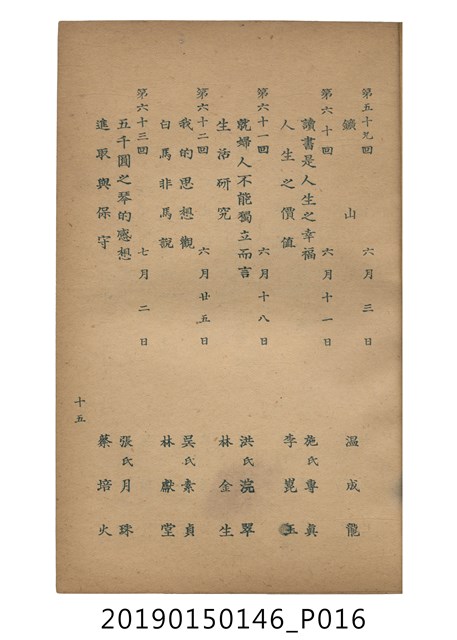 第五十九回　六月三日
鑛山　溫成龍
第六十回　六月十一日
讀書是人生之幸福　施氏專眞
人生之價值　李崑玉
第六十一回　六月十八日
就婦人不能獨立而言　洪氏浣翠
生活研究　林金生
第六十二回　六月廿五日
我的思想觀　吳氏素貞
白馬非馬說　林獻堂
第六十三回　七月二日
五千圓之琴的感想　張氏月珠
進取與保守　蔡培火
十五
20190150146_P016